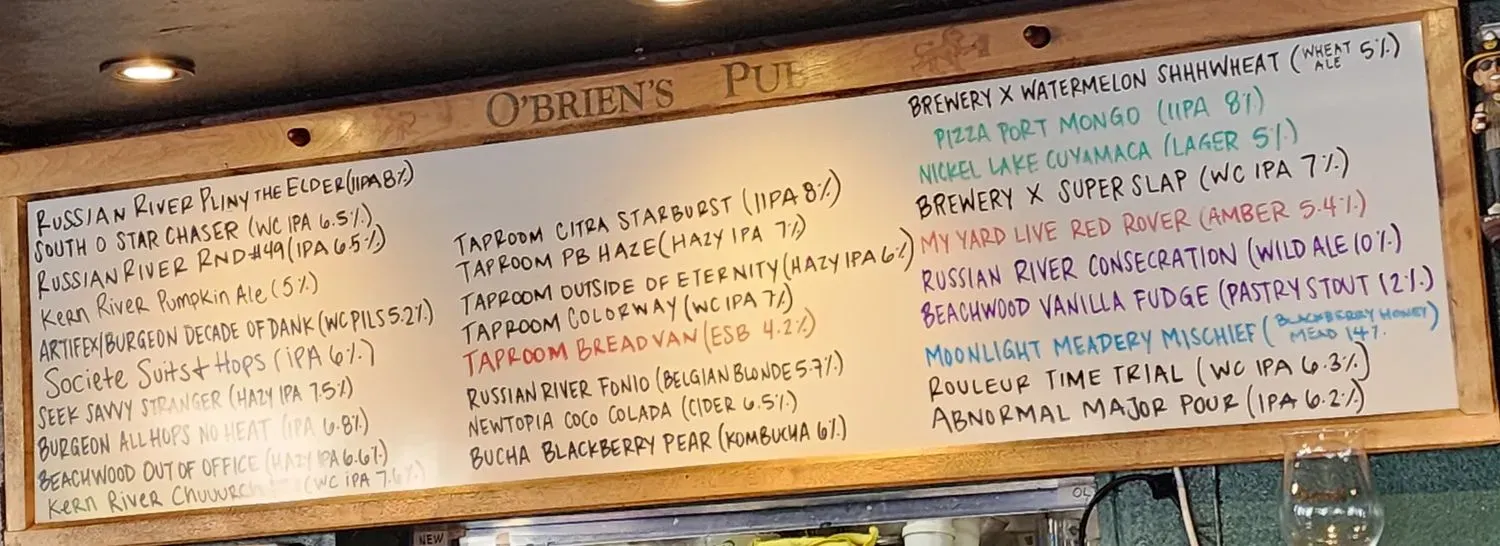 O'BRIEN'S PUB
RUSSIAN RIVER PLINY THE ELDER (IIPA 8%)
SOUTH O STAR CHASER (WC IPA 6.5%)
RUSSIAN RIVER RND #49 (IPA 6.5%)
KERN RIVER PUMPKIN ALE (5%)
ARTIFEX/BURGEON DECADE OF DANK (WC PILS 5.2%)
SOCIETE SUITS & HOPS (IPA 6%)
SEEK SAVVY STRANGER (HAZY IPA 7.5%)
BURGEON ALL HOPS NO HEAT (IPA 6.8%)
BEACHWOOD OUT OF OFFICE (HAZY IPA 6.6%)
KERN RIVER (WC IPA 7.6%)
TAPROOM CITRA STARBURST (IIPA 8%)
TAPROOM PB HAZE (HAZY IPA 7%)
TAPROOM OUTSIDE OF ETERNITY (HAZY IPA 6%)
TAPROOM COLORWAY (WC IPA 7%)
TAPROOM BREAD VAN (ESB 4.2%)
RUSSIAN RIVER FONIO (BELGIAN BLONDE 5.7%)
NEWTOPIA COCO COLADA (CIDER 6.5%)
BUCHA BLACKBERRY PEAR (KOMBUCHA 6%)
BREWERY X WATERMELON SHHHWHEAT (WHEAT ALE 5%)
PIZZA PORT MONGO (IIPA 8%)
NICKEL LAKE CUYAMACA (LAGER 5%)
BREWERY X SUPER SLAP (WC IPA 7%)
MY YARD LIVE RED ROVER (AMBER 5.4%)
RUSSIAN RIVER CONSECRATION (WILD ALE 10%)
BEACHWOOD VANILLA FUDGE (PASTRY STOUT 12%)
MOONLIGHT MEADERY MISCHIEF (BLACKBERRY HONEY MEAD 14%)
ROULEUR TIME TRIAL (WC IPA 6.3%)
ABNORMAL MAJOR POUR (IPA 6.2%)
NEW
OL